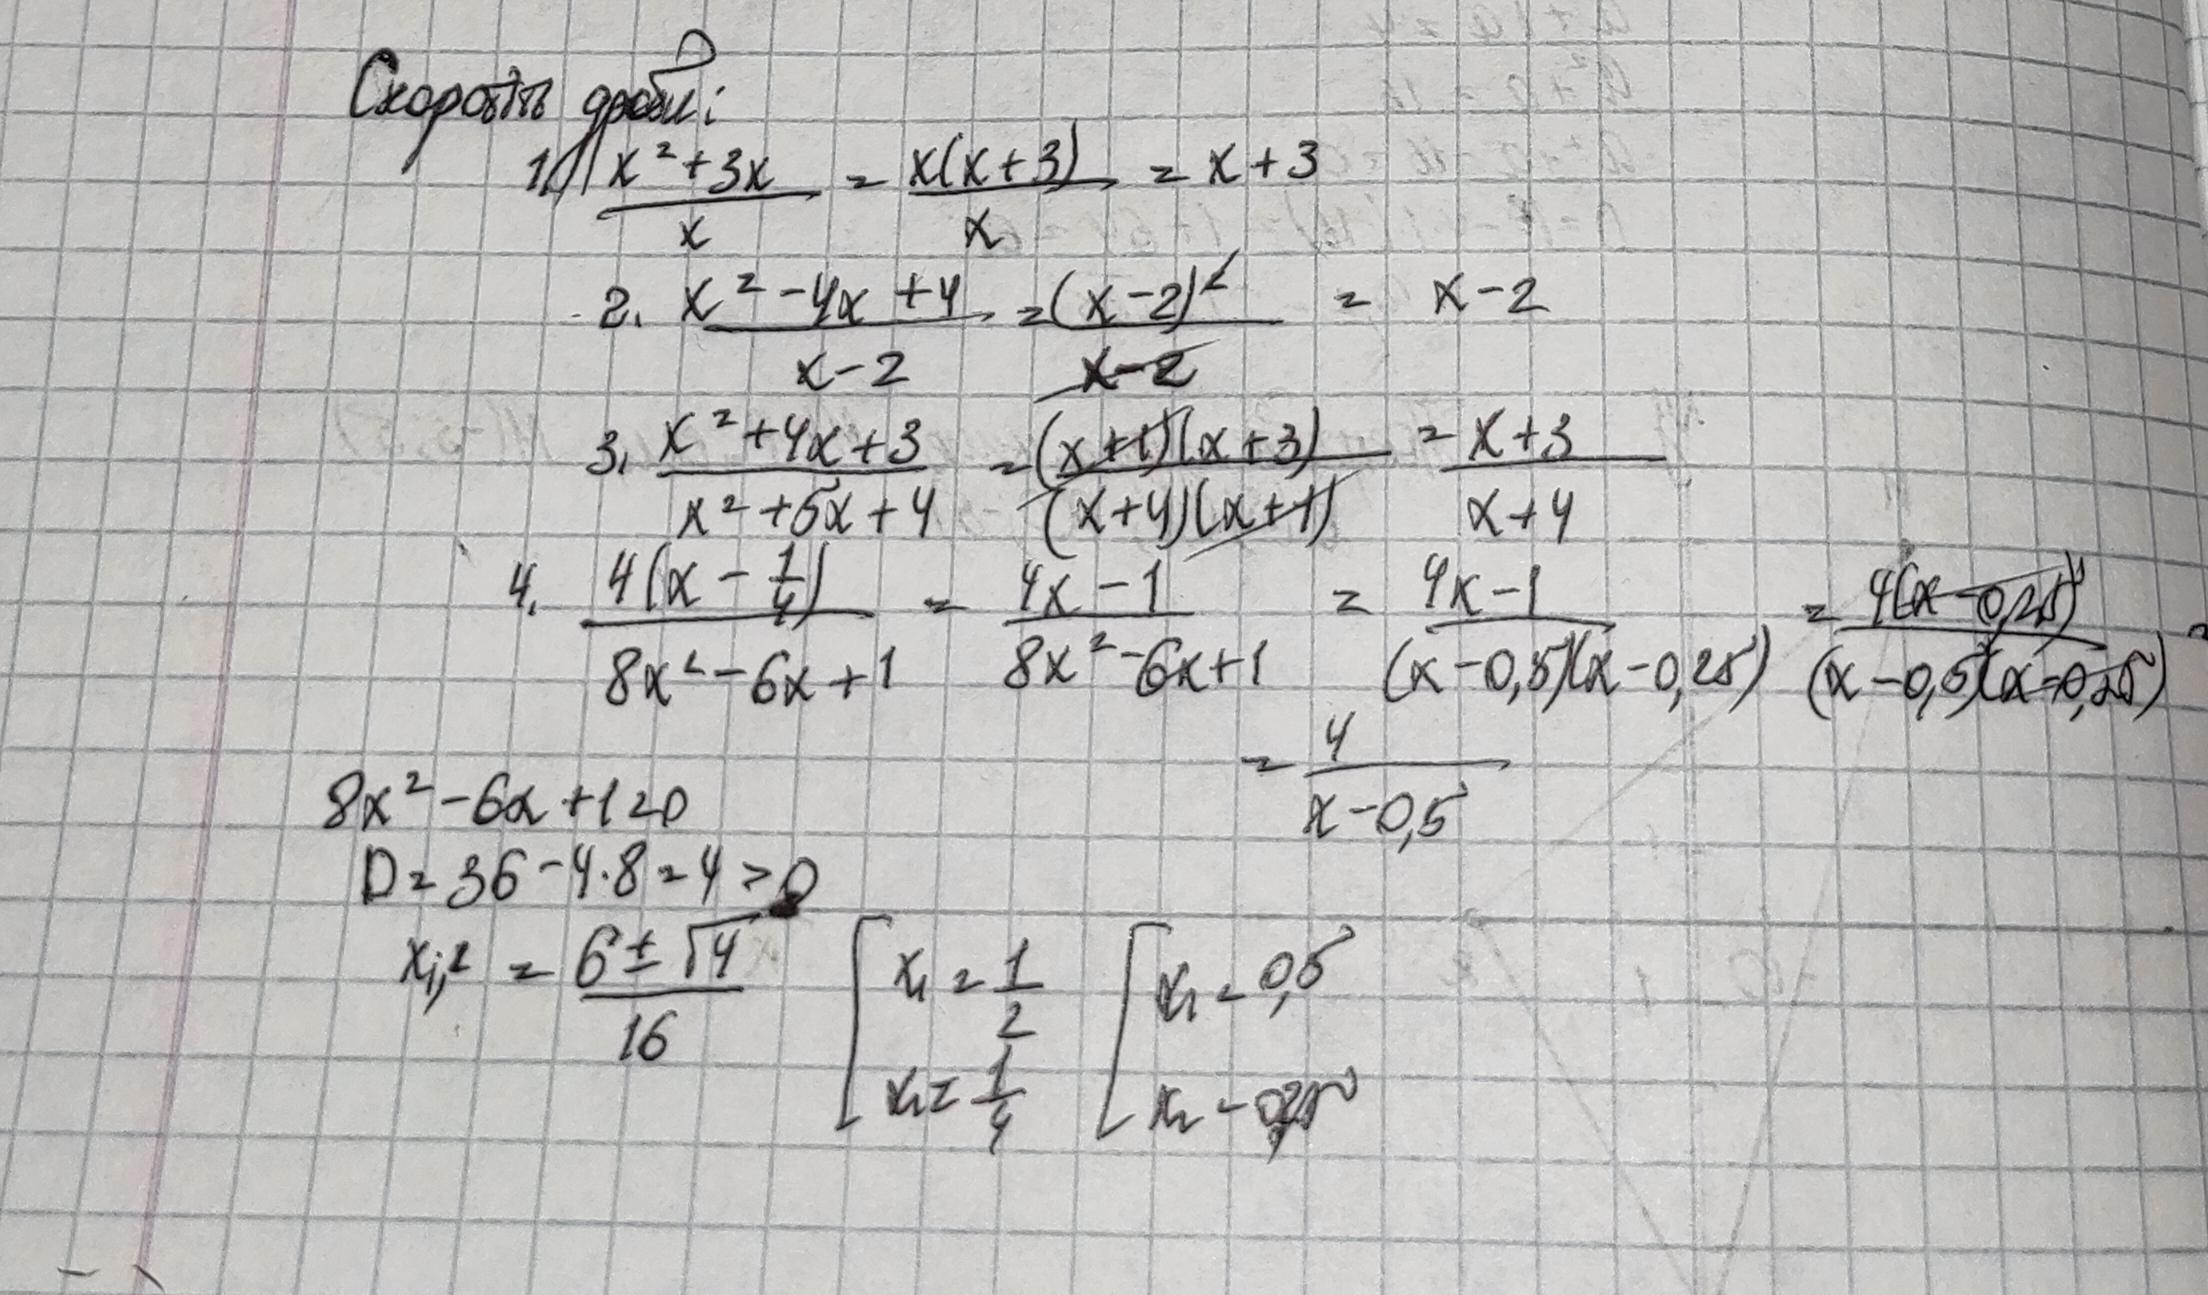 Скоротить дроби:
1) (x² + 3x)/x = x(x+3)/x = x + 3
2. (x² - 4x + 4)/(x - 2) = (x - 2)²/(x - 2) = x - 2
3. (x² + 4x + 3)/(x² + 5x + 4) = (x+1)(x+3)/((x+4)(x+1)) = (x+3)/(x+4)
4. 4(x - 1/4)/(8x² - 6x + 1) = (4x - 1)/(8x² - 6x + 1) = (4x - 1)/((x - 0,5)(x - 0,25)) = 4(x - 0,25)/((x - 0,5)(x - 0,25)) =
= 4/(x - 0,5)
8x² - 6x + 1 = 0
D = 36 - 4·8 = 4 > 0
x₁,₂ = (6 ± √4)/16 [ x₁ = 1/2 [ x₁ = 0,5
x₂ = 1/4 x₂ = 0,25